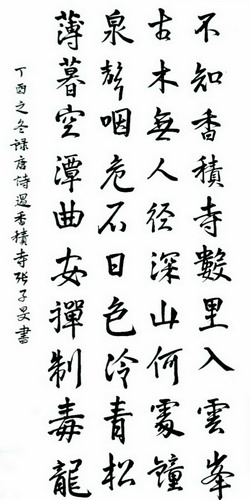 不知香積寺數里入雲峯
古木無人径深山何處鐘
泉聲咽危石日色冷青松
薄暮空潭曲安禪制毒龍
丁酉之冬録唐詩過香積寺張子旻書